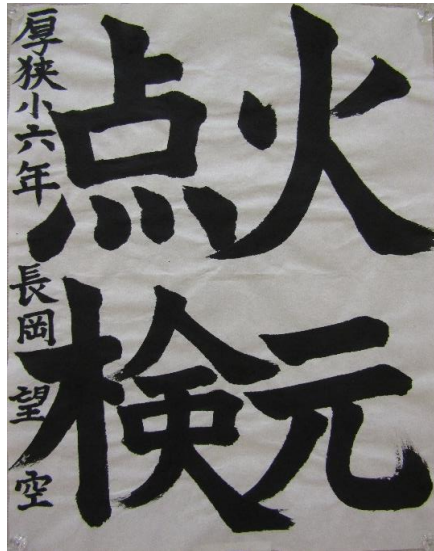 火元
点検
厚狭小六年 長岡望空